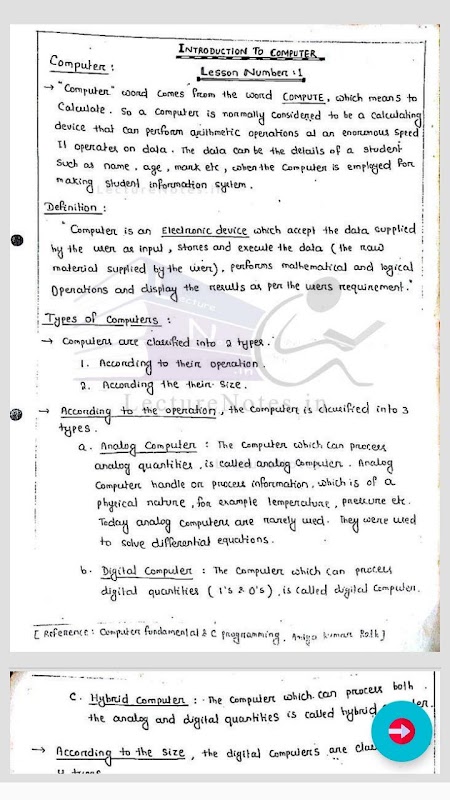 INTRODUCTION TO COMPUTER
Lesson Number : 1
Computer :
→ "Computer" word comes from the word COMPUTE, which means to
Calculate. So a Computer is normally considered to be a calculating
device that can perform arithmetic operations at an enormous speed
It operates on data. The data can be the details of a student
Such as name, age, mark etc, when the Computer is employed for
making student information system.
Definition :
"Computer is an Electronic device which accept the data supplied
by the user as input, stores and execute the data (the raw
material supplied by the user), performs mathematical and logical
Operations and display the results as per the users requirement."
Types of Computers :
→ Computers are classified into 2 types.
1. According to their operation.
2. According the their size.
LectureNotes.in
→ According to the operation, the Computer is classified into 3
types.
a. Analog Computer : The Computer which can process
analog quantities, is called analog Computer. Analog
Computer handle or process information, which is of a
physical nature, for example temperature, pressure etc.
Today analog Computers are rarely used. They were used
to solve differential equations.
b. Digital Computer : The Computer which can process
digital quantities (1's & 0's), is called digital Computer.
[Reference : Computer fundamental & C programming, Amiya Kumar Rath]
C. Hybrid Computer : The Computer which can process both
the analog and digital quantities is called hybrid
→ According to the size, the digital Computers are